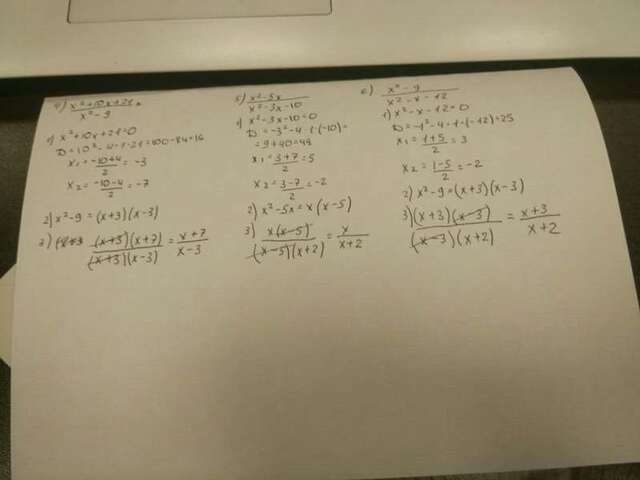 4) x²+10x+21 / x²-9
1) x²+10x+21=0
D=10²-4·1·21=100-84=16
x₁=-10+4/2=-3
x₂=-10-4/2=-7
2) x²-9=(x+3)(x-3)
3) (x+3)(x+7)/(x+3)(x-3)=x+7/x-3
5) x²-5x / x²-3x-10
1) x²-3x-10=0
D=-3²-4·1·(-10)=
=9+40=49
x₁=3+7/2=5
x₂=3-7/2=-2
2) x²-5x=x(x-5)
3) x(x-5)/(x-5)(x+2)=x/x+2
6) x²-9 / x²-x-12
1) x²-x-12=0
D=-1²-4·1·(-12)=25
x₁=1+5/2=3
x₂=1-5/2=-2
2) x²-9=(x+3)(x-3)
3) (x+3)(x-3)/(x-3)(x+2)=x+3/x+2